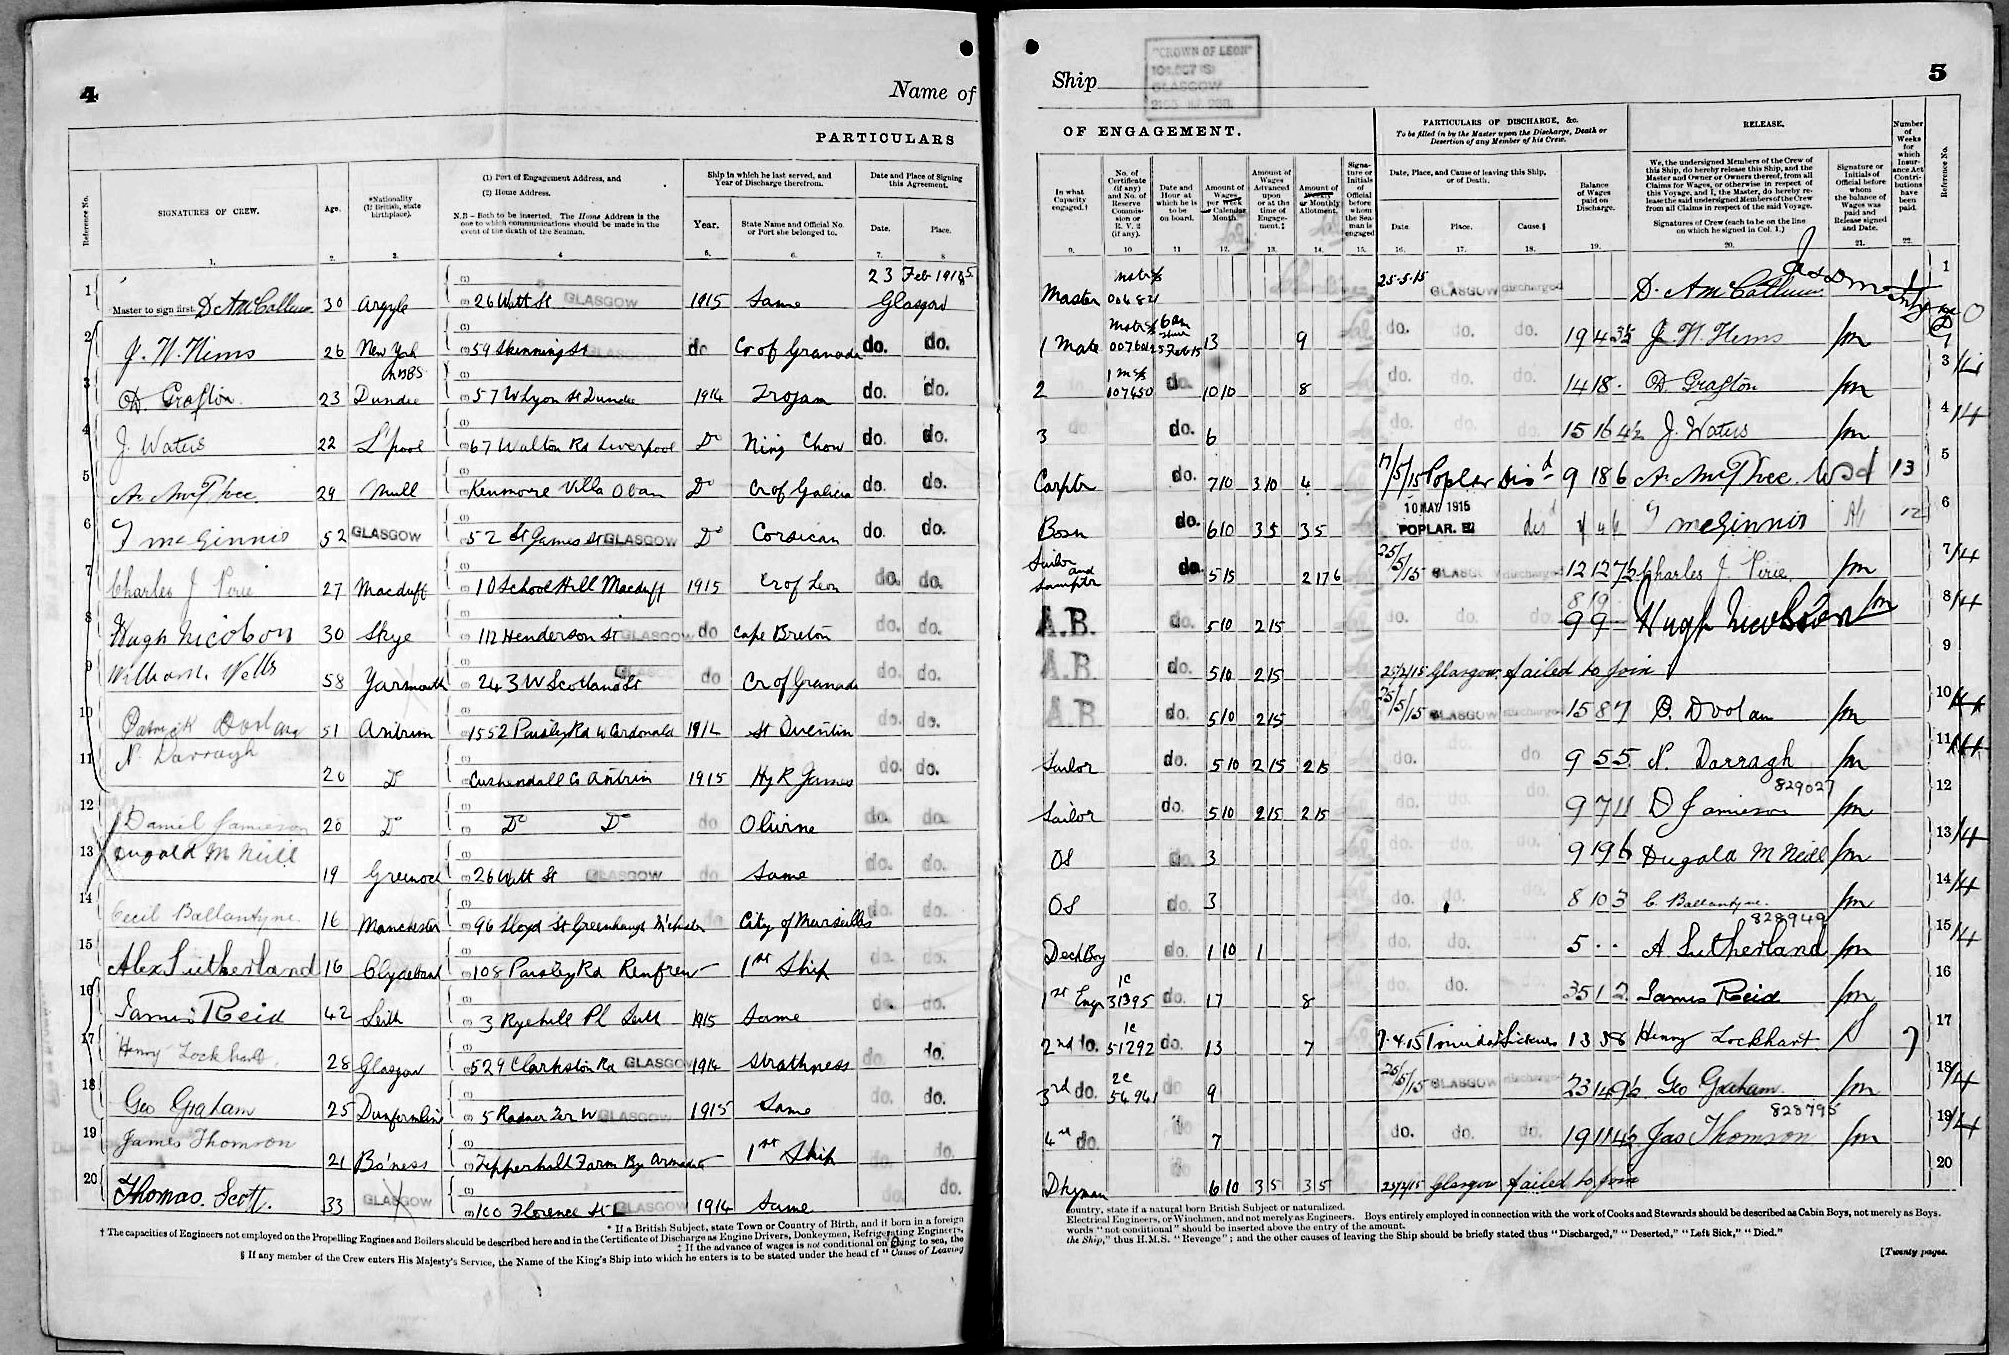 4
Name of
PARTICULARS
Reference No.
SIGNATURES OF CREW.
Age.
*Nationality
(If British, state
birthplace).
(1) Port of Engagement Address, and
(2) Home Address.
N.B—Both to be inserted. The Home Address is the
one to which communications should be made in the
event of the death of the Seaman.
Ship in which he last served, and
Year of Discharge therefrom.
Year.
State Name and Official No.
or Port she belonged to.
Date and Place of Signing
this Agreement.
Date.
Place.
1. 2. 3. 4 5. 6. 7. 8
23 Feb 1915
1 Master to sign first. D A McCallum 30 Argyle (1) (2) 26 Watt St GLASGOW 1915 Same Glasgow
2 J. W. Nims 26 New York NBBS 59 Skinning St GLASGOW do Cr of Granada do. do.
3 D. Grafton 23 Dundee 57 W Lyon St Dundee 1914 Trojan do. do.
4 J. Waters 22 L'pool 67 Walton Rd Liverpool Do Ning Chow do. do.
5 A. McPhee 29 Mull Kenmore Villa Oban Do Cr of Galicia do. do.
6 F McGinnis 52 GLASGOW 52 St James St GLASGOW Do Corsican do. do.
7 Charles J. Pirie 27 Macduff 10 School Hill Macduff 1915 Cr of Leon do. do.
8 Hugh Nicolson 30 Skye 112 Henderson St GLASGOW do Cape Breton do. do.
9 William Wells 58 Yarmouth 243 W Scotland St GLASGOW do Cr of Granada do. do.
10 Patrick Doolan 51 Antrim 1552 Paisley Rd W Cardonald 1914 St Quentin do. do.
11 N. Darragh 20 Do Cushendall Co Antrim 1915 Hy R James do. do.
12 Daniel Jamieson 20 Do Do Do do Olivine do. do.
13 Dugald McNeill 19 Greenock 26 Watt St GLASGOW do Same do. do.
14 Cecil Ballantyne 16 Manchester 96 Lloyd St Greenhays M'chester do City of Marseilles do. do.
15 Alex Sutherland 16 Clydebank 108 Paisley Rd Renfrew 1st Ship do. do.
16 James Reid 42 Leith 3 Ryehill Pl Leith 1915 Same do. do.
17 Henry Lockhart 28 Glasgow 529 Clarkston Rd GLASGOW 1914 Strathness do. do.
18 Geo Graham 25 Dunfermline 5 Radnor Ter W GLASGOW 1915 Same do. do.
19 James Thomson 21 Bo'ness Tapperhall Farm By Armadale 1st Ship do. do.
20 Thomas Scott. 33 GLASGOW 100 Florence St GLASGOW 1914 Same do. do.
* If a British Subject, state Town or Country of Birth, and if born in a foreign
† The capacities of Engineers not employed on the Propelling Engines and Boilers should be described here and in the Certificate of Discharge as Engine Drivers, Donkeymen, Refrigerating Engineers,
‡ If the advance of wages is not conditional on going to sea, the
§ If any member of the Crew enters His Majesty's Service, the Name of the King's Ship into which he enters is to be stated under the head of "Cause of Leaving
Ship
"CROWN OF LEON"
GLASGOW
5
OF ENGAGEMENT.
PARTICULARS OF DISCHARGE, &c.
To be filled in by the Master upon the Discharge, Death or
Desertion of any Member of his Crew.
RELEASE.
Number
of
Weeks
for
which
Insur-
ance Act
Contri-
butions
have
been
paid.
Reference No.
In what
Capacity
engaged.†
No. of
Certificate
(if any)
and No. of
Reserve
Commis-
sion or
R. V. 2
(if any).
Date and
Hour at
which he is
to be
on board.
Amount of
Wages
per Week
or Calendar
Month.
Amount of
Wages
Advanced
upon
or at the
time of
Engage-
ment.‡
Amount of
Weekly
or Monthly
Allotment.
Signa-
ture or
Initials
of
Official
before
whom
the Sea-
man is
engaged
Date, Place, and Cause of leaving this Ship,
or of Death.
Date
Place.
Cause.§
BALANCE
of Wages
paid on
Discharge.
We, the undersigned Members of the Crew of
this Ship, do hereby release this Ship, and the
Master and Owner or Owners thereof, from all
Claims for Wages, or otherwise in respect of
this Voyage, and I, the Master, do hereby re-
lease the said undersigned Members of the Crew
from all Claims in respect of the said Voyage.
Signatures of Crew (each to be on the line
on which he signed in Col. 1.)
Signature or
Initials of
Official before
whom
the balance of
Wages was
paid and
Release signed
and Date.
9. 10 11 12. 13. 14. 15. 16. 17. 18. 19. 20. 21. 22.
Master 00484 25-5-15 GLASGOW discharged D. A McCallum 1
1 Mate 13 9 do. do. do. 19 4 3½ J. W. Nims
2 107450 do. 10 10 8 do. do. do. 14 18 - D. Grafton 3
3 do. 6 do. do. do. 15 16 4½ J. Waters 4
Carptr do. 7 10 3 10 4 17/5/15 Poplar Disd 9 18 6 A. McPhee 13 5
Bosn do. 6 10 3 5 3 5 10 MAY 1915 POPLAR. E. disd F McGinnis 12 6
Sailor and Lamptr do. 5 15 2 17 6 25/5/15 GLASGOW discharged 12 12 7½ Charles J. Pirie 7
A.B. do. 5 10 2 15 do. do. do. 8 19 9 9 - Hugh Nicolson 8
A.B. do. 5 10 2 15 25/2/15 Glasgow failed to join 9
A.B do. 5 10 2 15 25/5/15 GLASGOW discharged 15 8 7 P. Doolan 10
Sailor do. 5 10 2 15 2 15 do. do. do 9 5 5 N. Darragh 11
829027
Sailor do. 5 10 2 15 2 15 do. do. do. 9 7 11 D Jamieson 12
OS do. 3 do. do. do. 9 19 6 Dugald McNeill 13
OS do. 3 do. do. do. 8 10 3 C. Ballantyne. 14
828949
Deck Boy do. 1 10 1 do. do. 5 - - A. Sutherland 15
1st Engr 1c 31395 do. 17 8 do. do. do. 35 1 2 James Reid 16
2nd do. 1c 51292 do. 13 7 7.4.15 Trinidad Sickness 13 3 8 Henry Lockhart 7 17
3rd do. 2c 54941 do 9 25/5/15 GLASGOW discharged 23 14 9½ Geo Graham 18
828795
4th do. do 7 do. do. do. 19 11 4½ Jas Thomson 19
Dkyman 6 10 3 5 3 5 25/2/15 Glasgow failed to join 20
country, state if a natural born British Subject or naturalized.
Electrical Engineers, or Winchmen, and not merely as Engineers. Boys entirely employed in connection with the work of Cooks and Stewards should be described as Cabin Boys, not merely as Boys.
words "not conditional" should be inserted above the entry of the amount.
the Ship," thus H.M.S. "Revenge"; and the other causes of leaving the Ship should be briefly stated thus "Discharged," "Deserted," "Left Sick," "Died."
[Twenty pages.